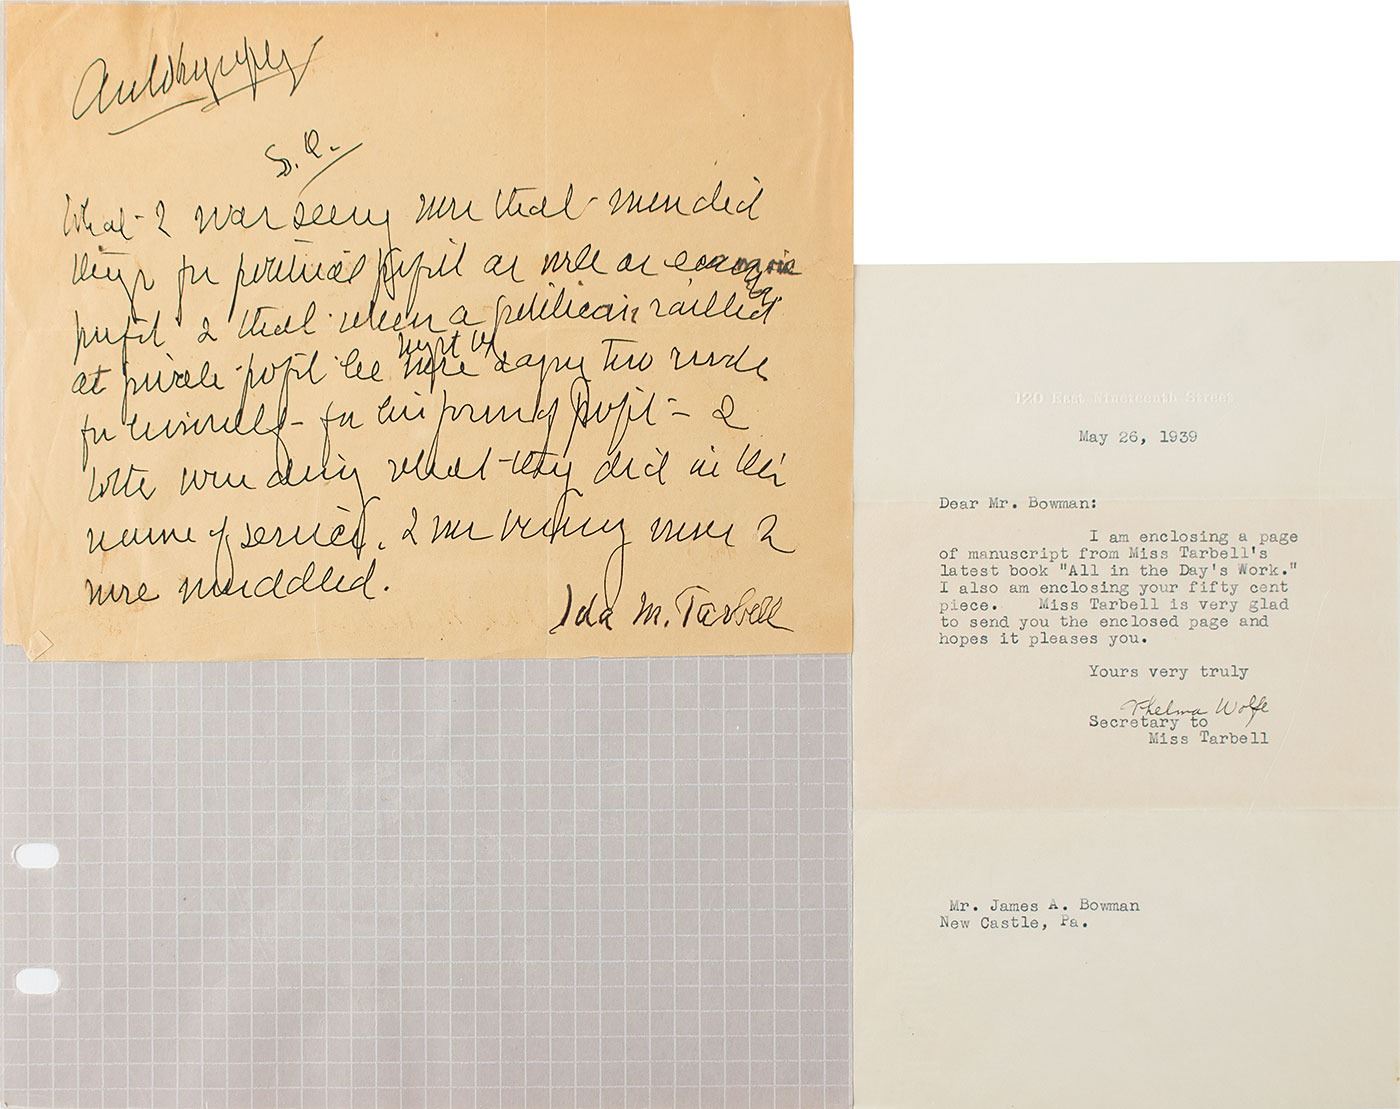 Autobiography
S. O.
What I was seeing was that men did
things for political profit as well as economic
profit & that when a politician railled
at private profit he was
for himself – for his form of profit – &
both were doing what they did in the
name of service. I was
more muddled.
Ida M. Tarbell
120 East Nineteenth Street
May 26, 1939
Dear Mr. Bowman:
I am enclosing a page
of manuscript from Miss Tarbell's
latest book "All in the Day's Work."
I also am enclosing your fifty cent
piece. Miss Tarbell is very glad
to send you the enclosed page and
hopes it pleases you.
Yours very truly
Thelma Wolfe
Secretary to
Miss Tarbell
Mr. James A. Bowman
New Castle, Pa.